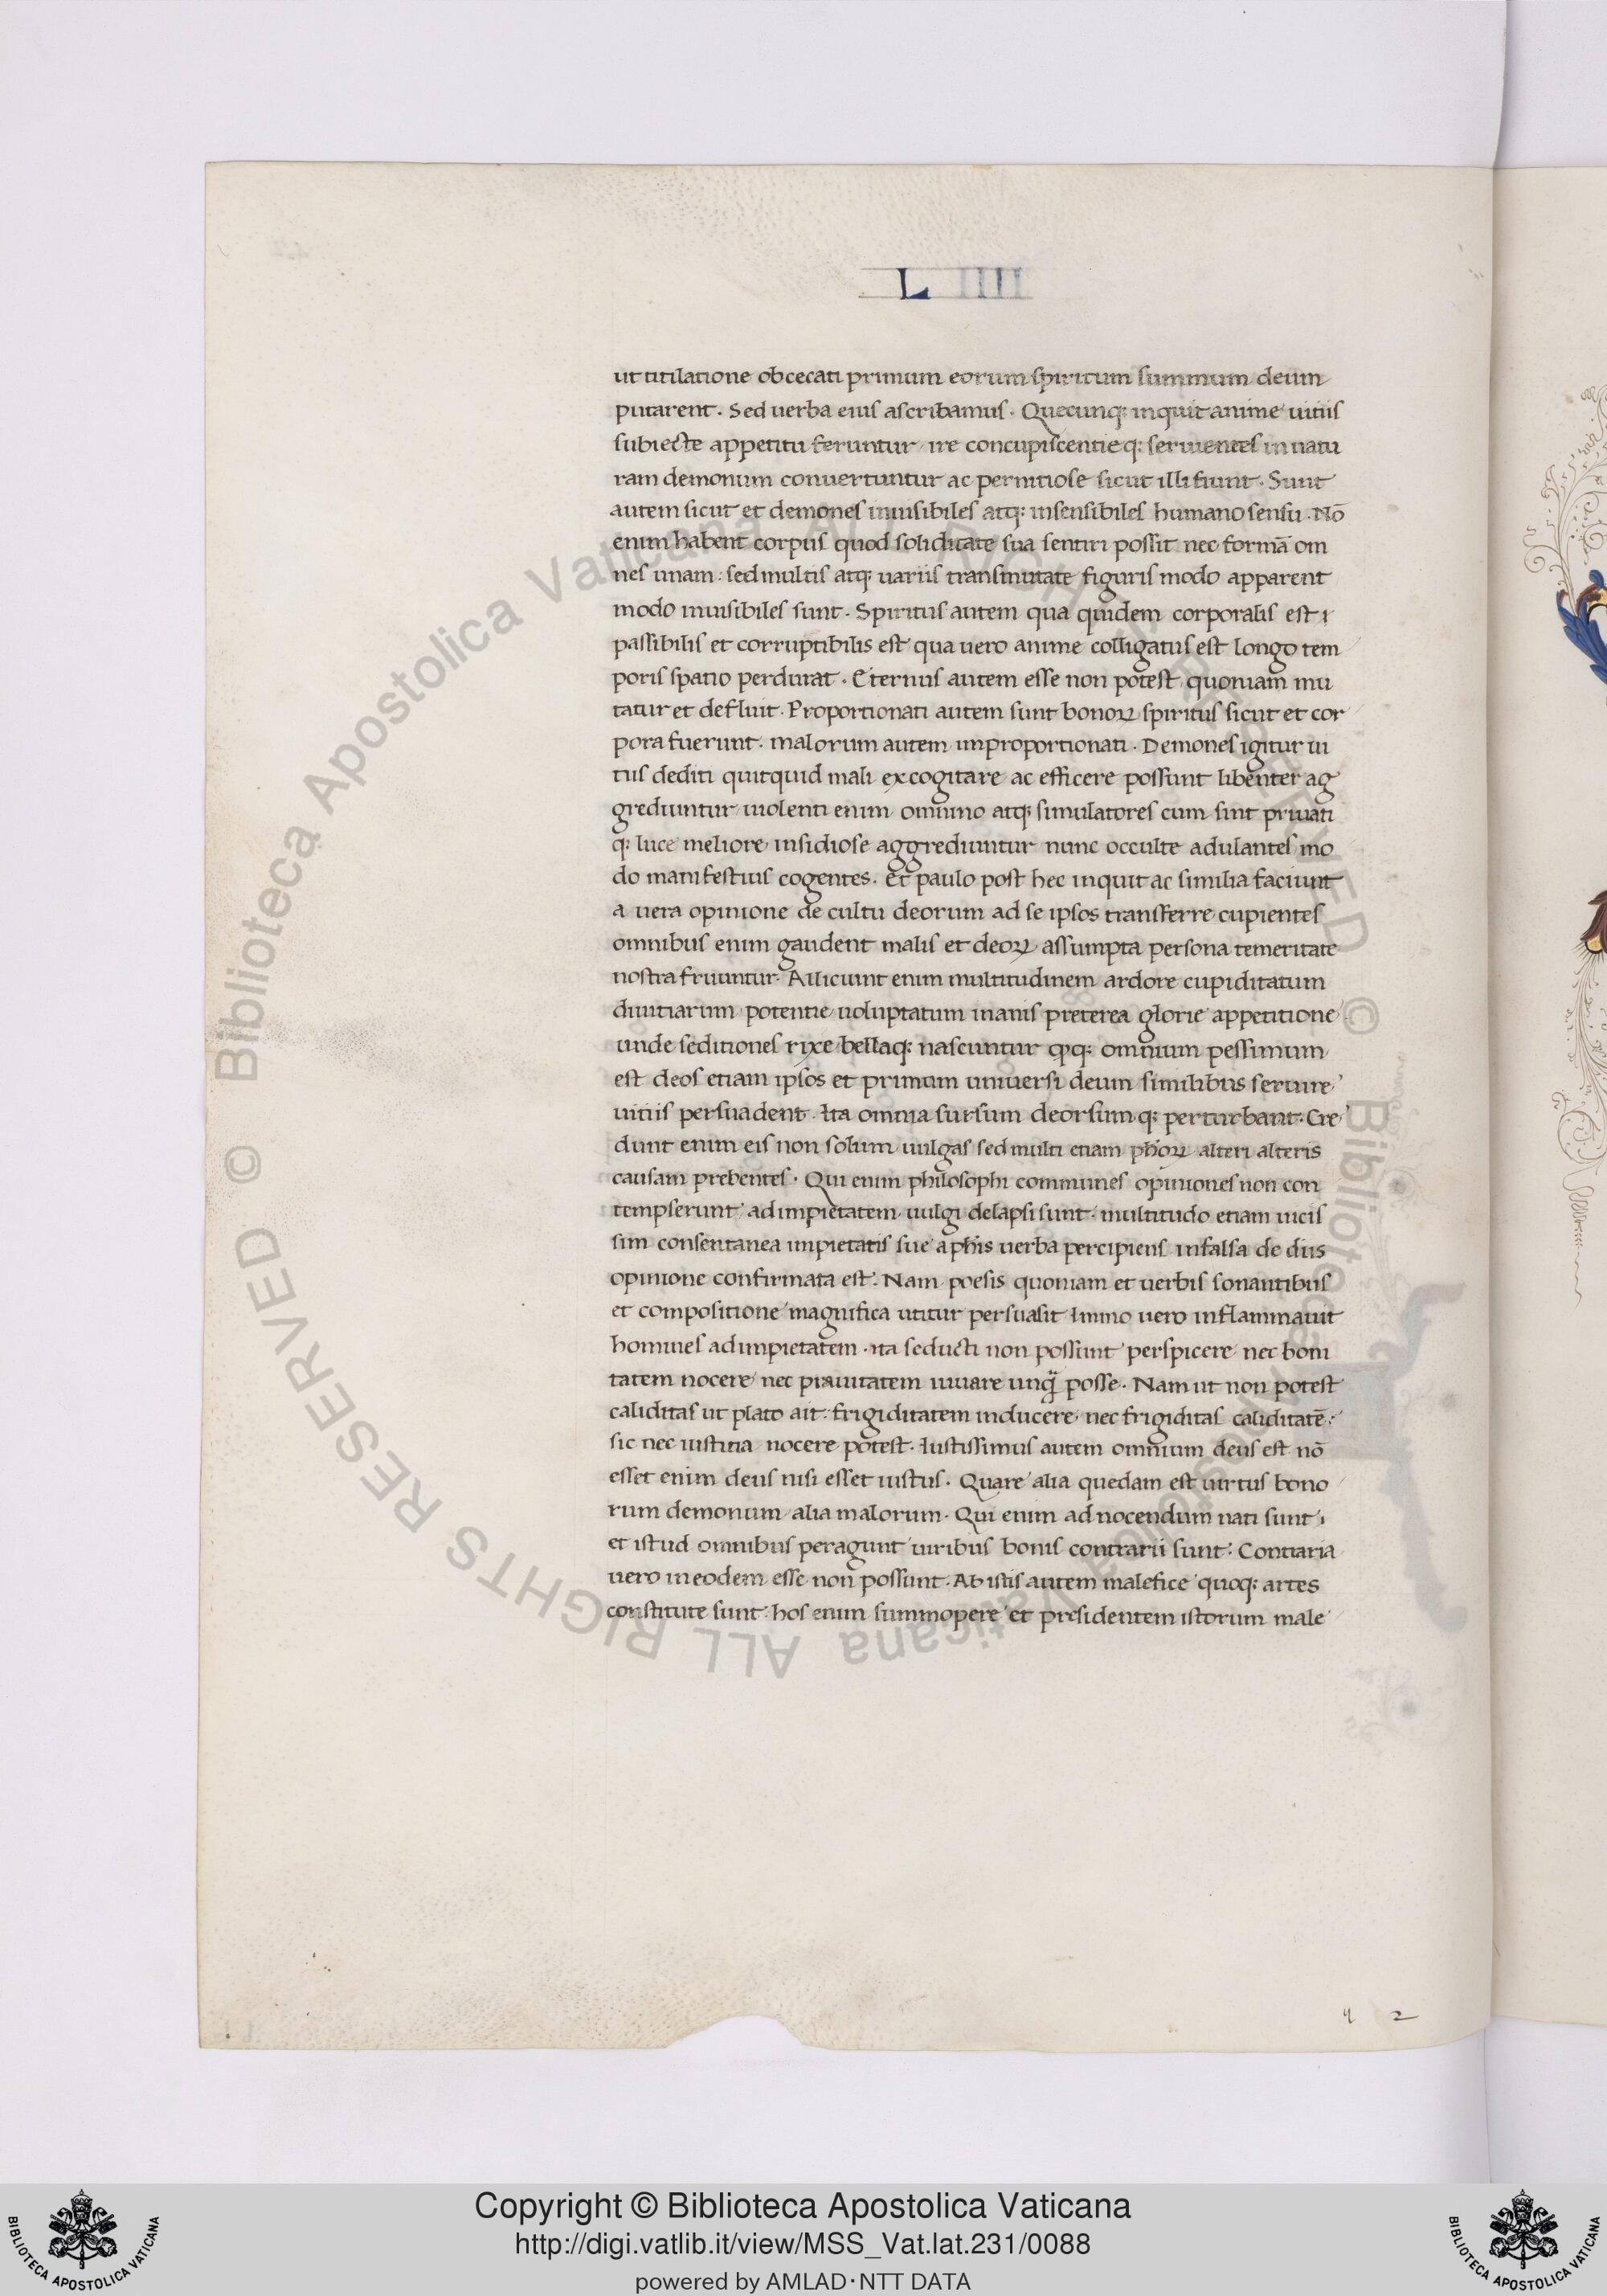 L IIII
ut titilatione obcecati primum eorum spiritum summum deum
putarent. Sed uerba eius ascribamus. Quecunq; inquit anime uitiis
subiecte appetitu feruntur ire concupiscentieq; seruientes in natu
ram demonum conuertuntur ac pernitiose sicut illi fiunt. Sunt
autem sicut et demones inuisibiles atq; insensibiles humano sensu. Nō
enim habent corpus quod soliditate sua sentiri possit nec formā om
nes unam: sed multis atq; uariis transmutate figuris modo apparent
modo inuisibiles sunt. Spiritus autem qua quidem corporalis est
passibilis et corruptibilis est qua uero anime colligatus est longo tem
poris spatio perdurat. Eternus autem esse non potest quoniam mu
tatur et defluit. Proportionati autem sunt bonoꝝ spiritus sicut et cor
pora fuerunt. malorum autem improportionati. Demones igitur ui
tus dediti quitquid mali excogitare ac efficere possunt libenter ag
grediuntur uiolenti enim omnino atq; simulatores cum sint priuati
q; luce meliore insidiose aggrediuntur nunc occulte adulantes mo
do manifestius cogentes. Et paulo post hec inquit ac similia faciunt
a uera opinione de cultu deorum ad se ipsos transferre cupientes
omnibus enim gaudent malis et deoꝝ assumpta persona temeritate
nostra fruuntur. Alliciunt enim multitudinem ardore cupiditatum
diuitiarum potentie uoluptatum inanis preterea glorie appetitione
unde seditiones rixe bellaq; nascuntur qꝫq; omnium pessimum
est deos etiam ipsos et primum uniuersi deum similibus seruire
uitiis persuadent. Ita omnia sursum deorsumq; perturbant. Cre
dunt enim eis non solum uulgas sed multi etiam ph̄oꝝ alteri alteris
causam prebentes. Qui enim philosophi communes opiniones non con
tempserunt ad impietatem uulgi delapsi sunt. multitudo etiam uicis
sim consentanea impietatis sue a ph̄is uerba percipiens in falsa de diis
opinione confirmata est. Nam poesis quoniam et uerbis sonantibus
et compositione magnifica utitur persuasit Immo uero inflammauit
homines ad impietatem. ita seducti non possunt perspicere nec boni
tatem nocere nec prauitatem iuuare unq̄ posse. Nam ut non potest
caliditas ut plato ait: frigiditatem inducere nec frigiditas caliditatē:
sic nec iustitia nocere potest. Iustissimus autem omnium deus est nō
esset enim deus nisi esset iustus. Quare alia quedam est uirtus bono
rum demonum alia malorum. Qui enim ad nocendum nati sunt
et istud omnibus peragunt uiribus bonis contrarii sunt: Contraria
uero in eodem esse non possunt. Ab istis autem malefice quoq; artes
constitute sunt: hos enim summopere et presidentem istorum male
4 2
© Biblioteca Apostolica Vaticana ALL RIGHTS RESERVED
© Biblioteca Apostolica Vaticana ALL RIGHTS RESERVED
Copyright © Biblioteca Apostolica Vaticana
http://digi.vatlib.it/view/MSS_Vat.lat.231/0088
powered by AMLAD·NTT DATA
BIBLIOTECA APOSTOLICA VATICANA
BIBLIOTECA APOSTOLICA VATICANA